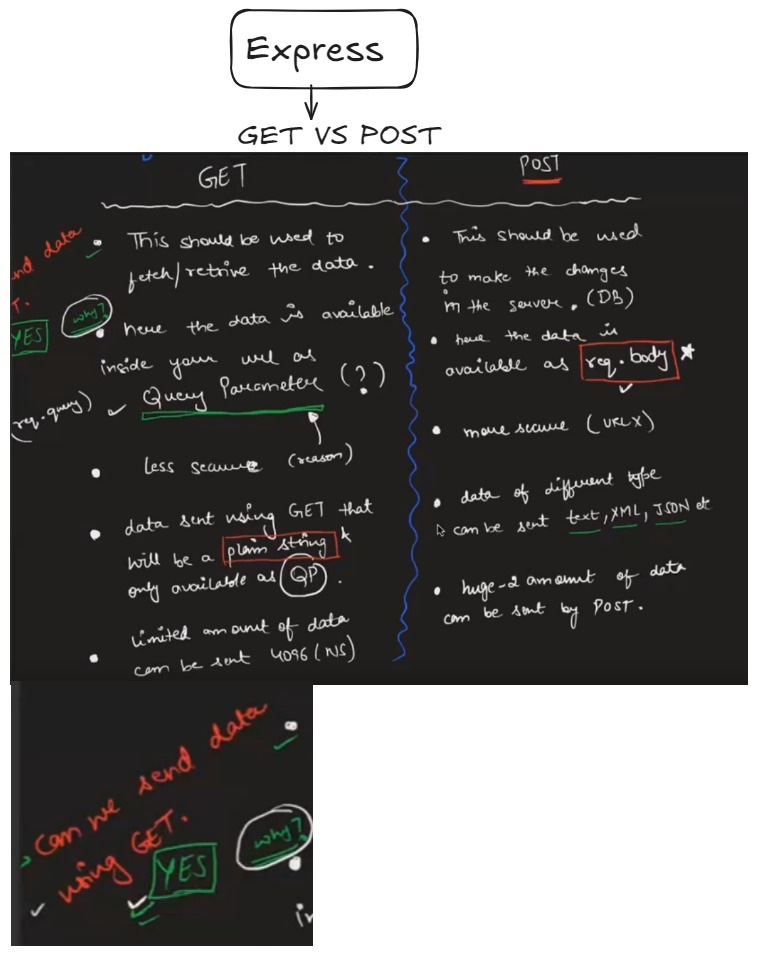 Express
GET VS POST
GET
This should be used to
fetch/retrive the data.
why?
here the data is available
inside your url as
(req.query)
Query Parameter (?)
Less secure (reason)
data sent using GET that
will be a plain string
only available as QP.
Limited amount of data
can be sent 4096 (NS)
nd data
T.
YES
POST
This should be used
to make the changes
in the server. (DB)
here the data is
available as req.body
more secure (URL X)
data of different type
can be sent text, XML, JSON etc
huge-2 amount of data
can be sent by POST.
Can we send data
using GET.
YES
why?
in